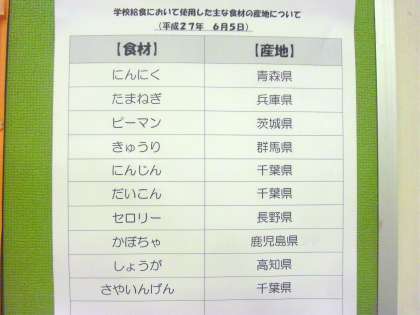 学校給食において使用した主な食材の産地について
（平成２７年　６月５日）
【食材】　【産地】
にんにく　青森県
たまねぎ　兵庫県
ピーマン　茨城県
きゅうり　群馬県
にんじん　千葉県
だいこん　千葉県
セロリー　長野県
かぼちゃ　鹿児島県
しょうが　高知県
さやいんげん　千葉県